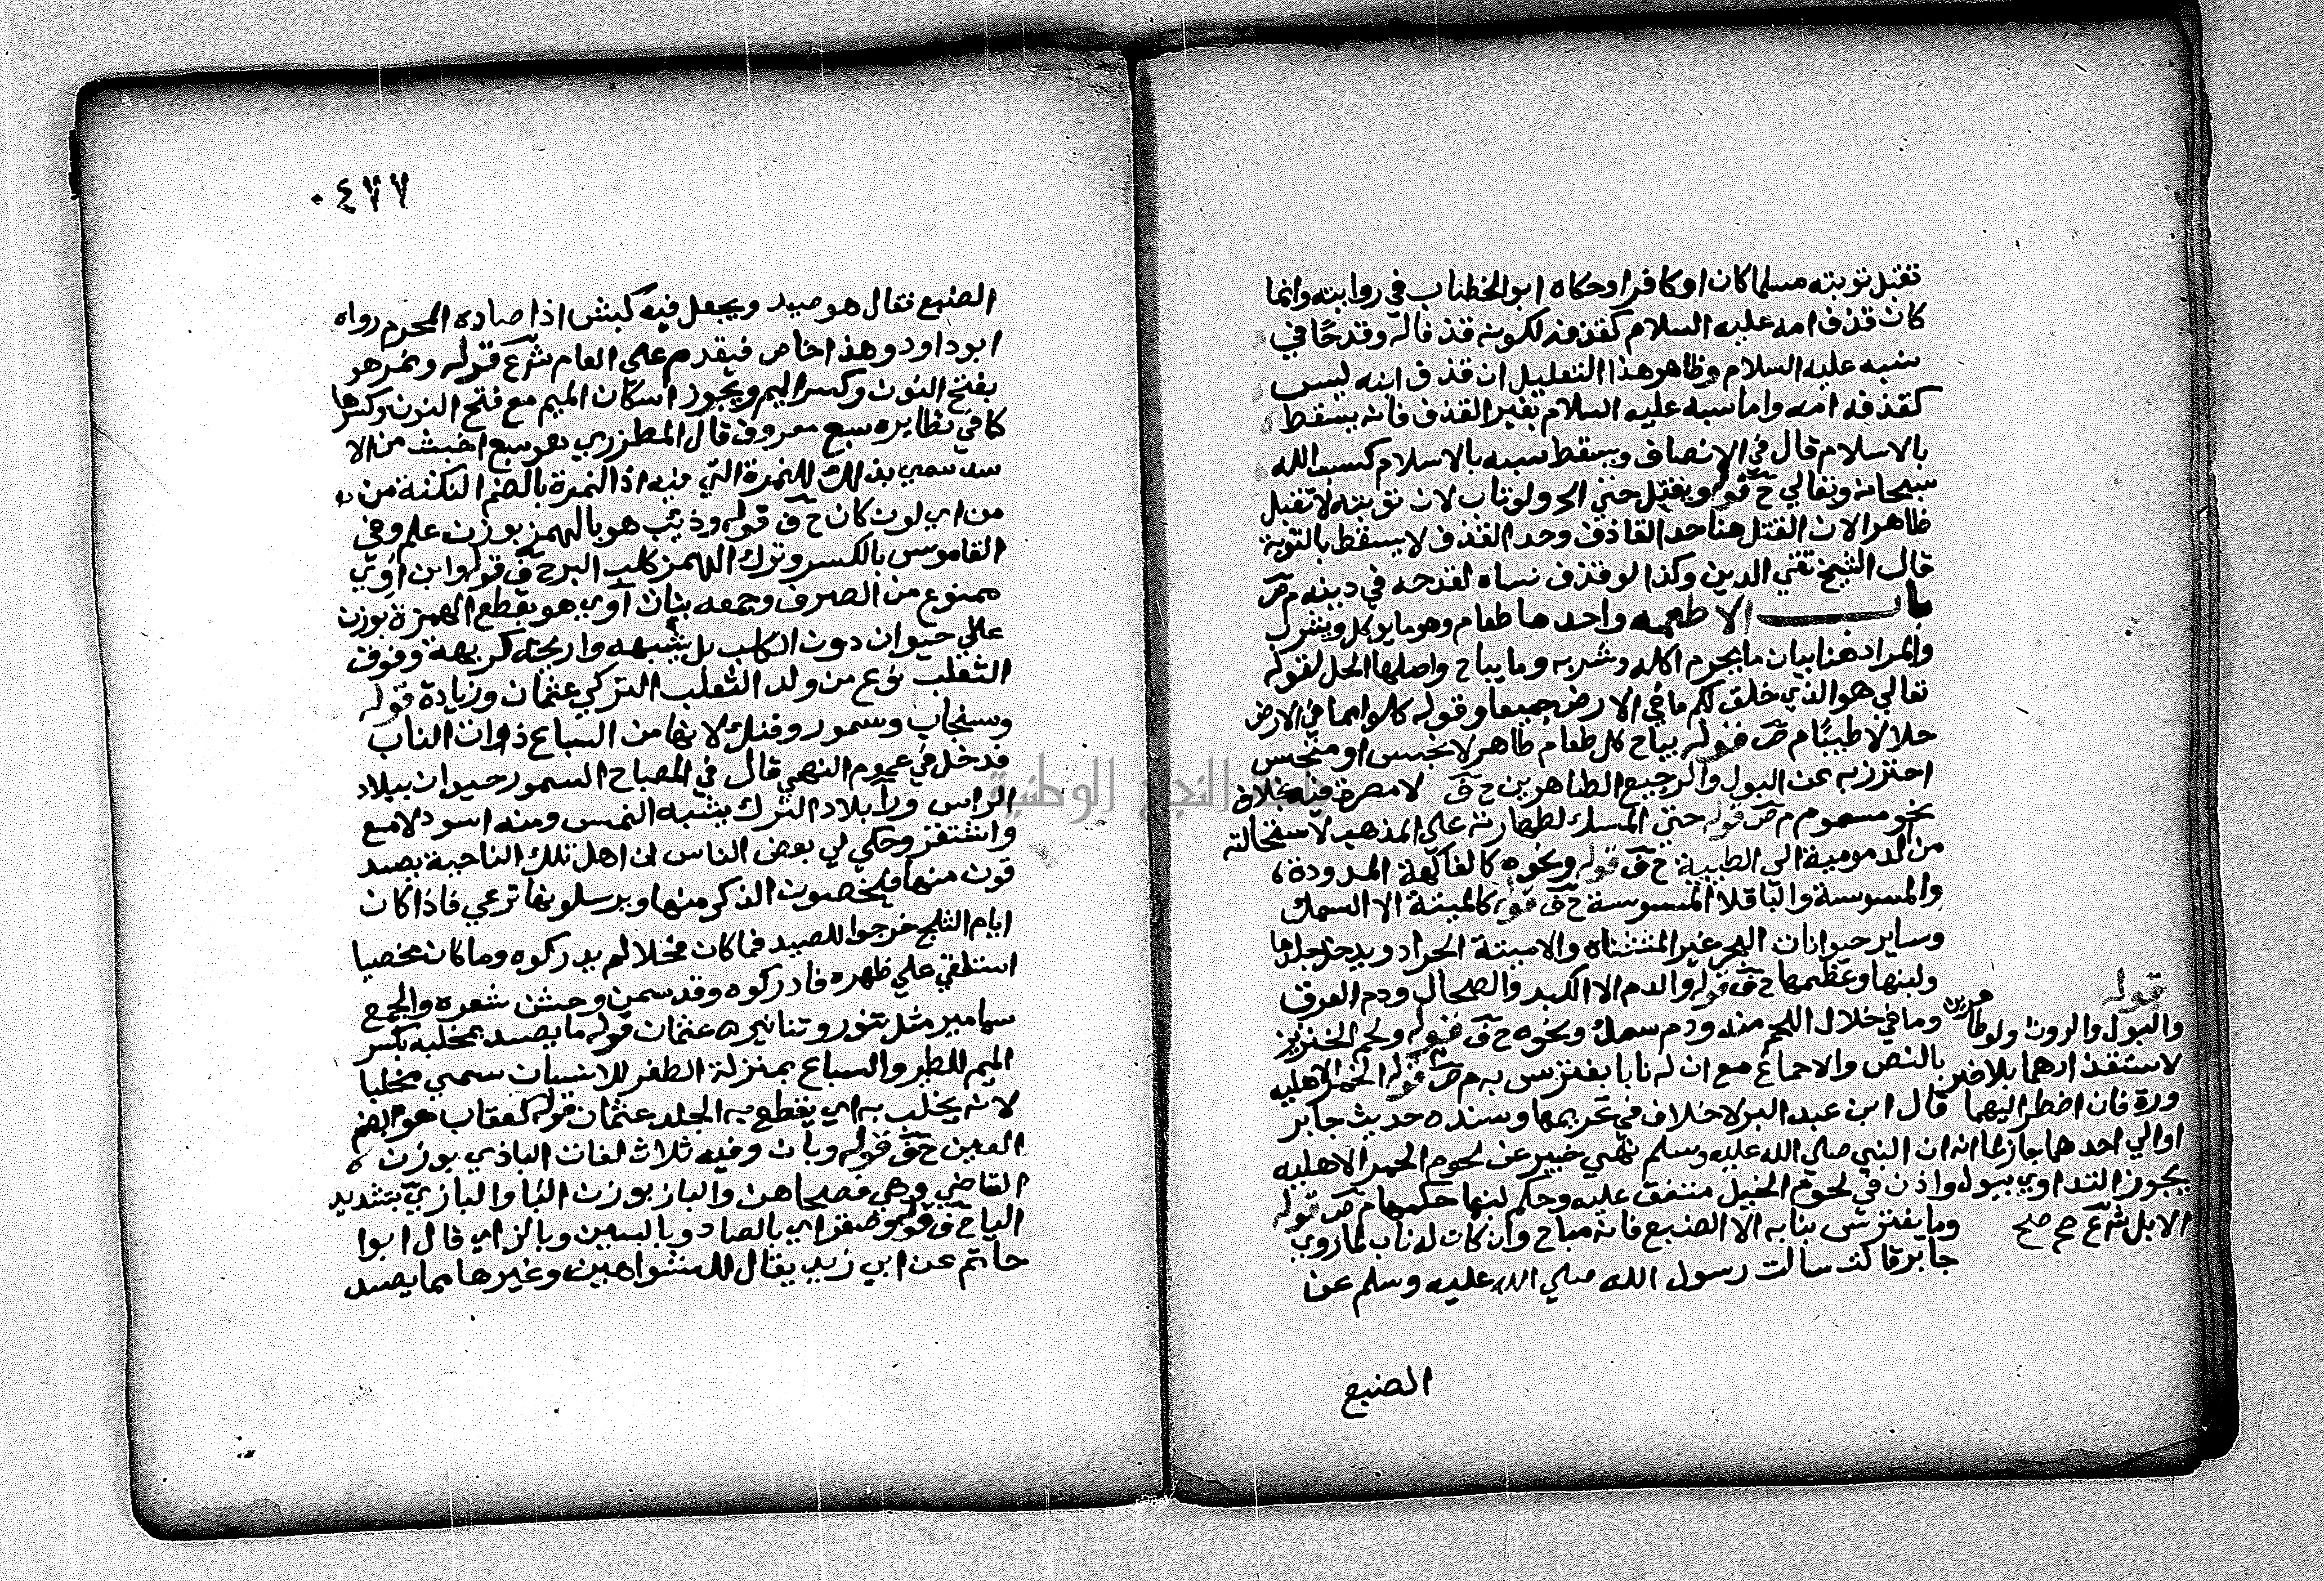 تقبل توبته مسلما كان او كافرا وحكاه ابو الخطاب في روايته وانما
كان قذف امه عليه السلام كقذفه لكونه قذفا له وقدحا في
نسبه عليه السلام وظاهر هذا التعليل ان قذف ابنه ليس
كقذفه امه واما سبه عليه السلام بغير القذف فانه يسقط
بالاسلام قال في الانصاف ويسقط سبه بالاسلام كسب الله
سبحانه وتعالي ح ف قوله ويقتل حتي الحر ولو تاب لان توبته لا تقبل
ظاهرا لان القتل هنا حد القاذف وحد القذف لا يسقط بالتوبة
قال الشيخ تقي الدين وكذا لو قذف نساه لقدحه في دينه م ص
باب الاطعمه واحدها طعام وهو ما يوكل ويشرب
والمراد هنا بيان ما يحرم اكله وشربه وما يباح واصلها الحل لقوله
تعالي هو الذي خلق لكم ما في الارض جميعا وقوله كلوا مما في الارض
حلالا طيبا م ص قوله يباح كل طعام طاهر لا نجس او متنجس
احترز به عن البول والرجيع الطاهرين ح ف لا مضرة فيه بخلاف
نحو مسموم م ص قوله حتي المسك لطهارته علي المذهب لاستحالته
من الدموية الي الطيبية ح ف قوله ونحوه كالفاكهة المدودة
والمسوسة والباقلا المسوسة ح ف قوله كالميتة الا السمك
وساير حيوانات البحر غير المستثناه والاميتة الجراد ويدخل جلدها
ولبنها وعظمها ح ف قوله والدم الا الكبد والطحال ودم العرق
وما في خلال اللحم منه ودم سمك ونحوه ح ف قوله ولحم الخنزير
بالنص والاجماع مع ان له نابا يفترس به م ص قوله الحمر الاهليه
قال ابن عبد البر لا خلاف في تحريمها وسنده حديث جابر
ان النبي صلي الله عليه وسلم نهي خيبر عن لحوم الحمر الاهليه
واذن في لحوم الخيل متفق عليه وحكم لبنها حكمها م ص قوله
وما يفترس بنابه الا الضبع فانه مباح وان كان له ناب لما روي
جابر قال سالت رسول الله صلي الله عليه وسلم عن
الضبع
قوله
والبول والروث ولو طاهرين
لاستقذارهما بلا ضر
ورة فان اضطر اليهما
اوالي احدهما جاز
يجوز التداوي ببول
الابل شرع صح صح
٠٤٧٧
الضبع فقال هو صيد ويجعل فيه كبش اذا صاده المحرم رواه
ابو داود وهذا خاص فيقدم علي العام شرع قوله ونمر هو
بفتح النون وكسر الميم ويجوز اسكان الميم مع فتح النون وكسرها
كما في نظايره سبع معروف قال المطرزي هو سبع اخبث من الا
سد سمي بذلك للنمرة التي فيه اذ النمرة بالضم النكتة من
من اي لون كان ح ف قوله وذئب هو بالهمز بوزن علم وفي
القاموس بالكسر وترك الهمز كلب البر ح ف قوله وابن اوي
ممنوع من الصرف وجمعه بنات آوي هو بقطع الهمزة بوزن
عالي حيوان دون الكلب بل يشبهه واريحته كريهة وفوق
الثعلب نوع من ولد الثعلب التركي عثمان وزيادة قوله
وسنجاب وسمور وفنك لانها من السباع ذوات الناب
فدخل في عموم النهي قال في المصباح السمور حيوان ببلاد
الراس ورا بلاد الترك يشبه النمس ومنه اسود لامع
واشقر وحكي لي بعض الناس ان اهل تلك الناحية يصيد
قون منها فيخصون الذكر منها ويرسلونها ترعي فاذا كان
ايام الثلج خرجوا للصيد فما كان فحلا لم يدركوه وما كان مخصيا
استلقي علي ظهره فادركوه وقد سمن وحسن شعره والجمع
سمامير مثل تنور وتنانير ه عثمان قوله ما يصيد بمخلبه بكسر
الميم للطير والسباع بمنزلة الظفر للانسان سمي مخلبا
لانه يخلب به اي يقطع به الجلد عثمان قوله كعقاب هو بالضم
العين ح ف قوله وباز وفيه ثلاث لغات البازي بوزن
القاضي وهي فصحاهن والباز بوزن الباء والبازي بتشديد
الياح ف قوله وصقر اي بالصاد وبالسين وبالزاي قال ابوا
حاتم عن ابي زيد يقال للشواهين وغيرها مما يصيد